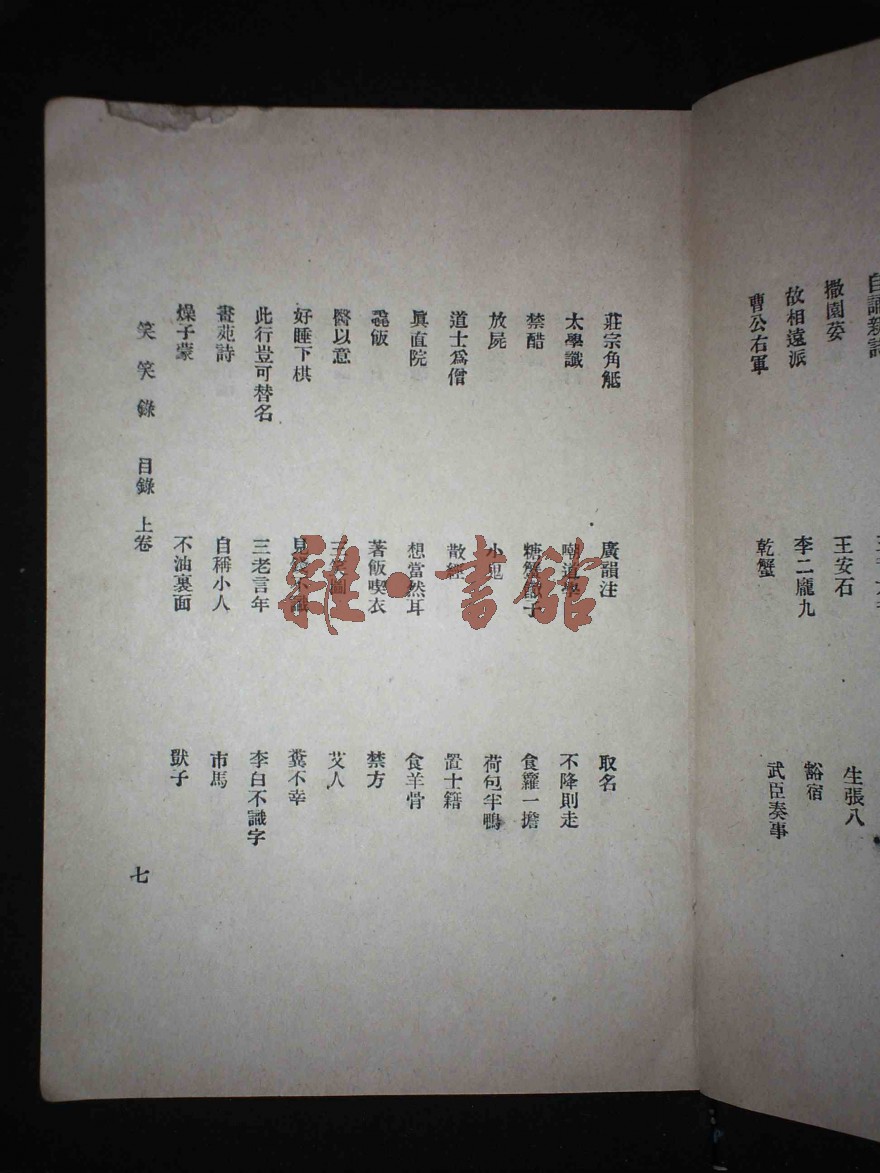 撒園荽
故相遠派
曹公右軍
王安石
李二龐九
乾蟹
生張八
谿宿
武臣奏事
莊宗角觝
太學讖
禁醋
放屍
道士爲僧
眞直院
毳飯
醫以意
好睡下棋
此行豈可替名
畫苑詩
燥子蒙
廣韻注
嘲道學
糖蟹
子
小鬼
散經
想當然耳
著飯喫衣
三老言年
自稱小人
不油裏面
取名
不降則走
食蘿一擔
荷包半鴨
置士籍
食羊骨
禁方
艾人
糞不幸
李白不識字
市馬
獃子
笑笑錄 目錄 上卷
七
雜·書館